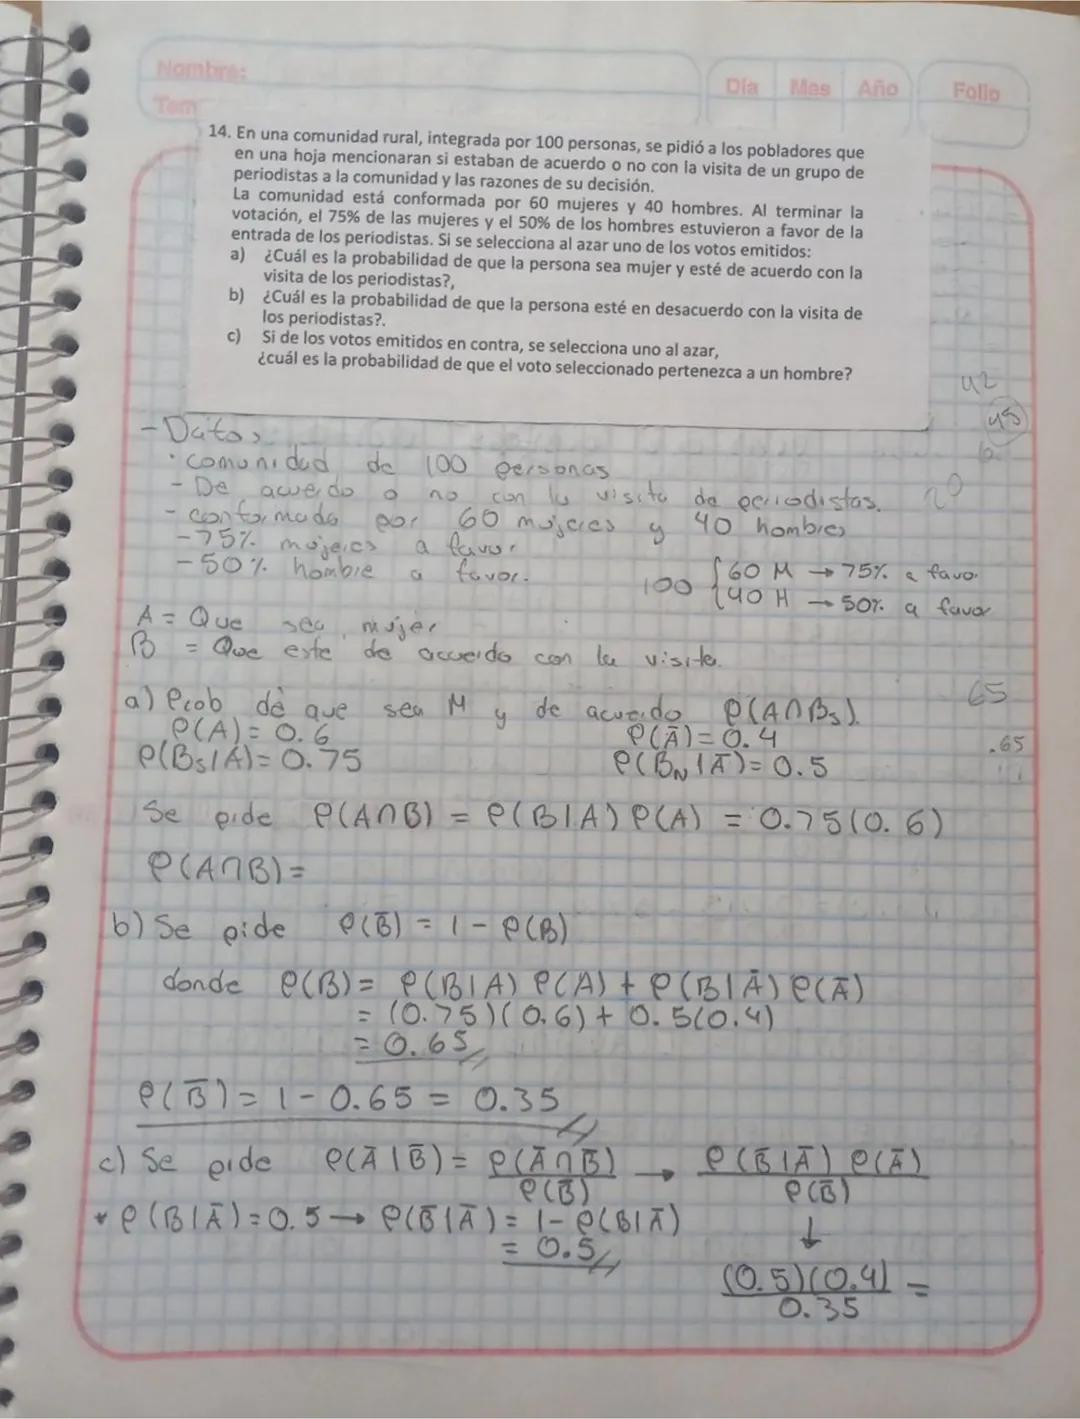 Nombre:
Día Mes Año Folio
Tem
14. En una comunidad rural, integrada por 100 personas, se pidió a los pobladores que
en una hoja mencionaran si estaban de acuerdo o no con la visita de un grupo de
periodistas a la comunidad y las razones de su decisión.
La comunidad está conformada por 60 mujeres y 40 hombres. Al terminar la
votación, el 75% de las mujeres y el 50% de los hombres estuvieron a favor de la
entrada de los periodistas. Si se selecciona al azar uno de los votos emitidos:
a) ¿Cuál es la probabilidad de que la persona sea mujer y esté de acuerdo con la
visita de los periodistas?,
b) ¿Cuál es la probabilidad de que la persona esté en desacuerdo con la visita de
los periodistas?.
c) Si de los votos emitidos en contra, se selecciona uno al azar,
¿cuál es la probabilidad de que el voto seleccionado pertenezca a un hombre?
42
45
- Datos
· comunidad de 100 personas
- De acuerdo o no con la visita de periodistas. 20
- conformada por 60 mujeres y 40 hombres
- 75% mujeres a favor
- 50% hombre a favor.
100 { 60 M → 75% a favo.
40 H → 50% a favor
A = Que sea mujer
B = Que este de acuerdo con la visita.
65
a) Prob de que sea M y de acuerdo P(A∩Bs).
P(A) = 0.6 P(Ā) = 0.4
.65
P(Bs|A) = 0.75 P(B_N|Ā) = 0.5
Se pide P(A∩B) = P(B|A) P(A) = 0.75(0.6)
P(A∩B) =
b) Se pide P(B̄) = 1 - P(B)
donde P(B) = P(B|A) P(A) + P(B|Ā) P(Ā)
= (0.75)(0.6) + 0.5(0.4)
= 0.65
P(B̄) = 1 - 0.65 = 0.35
c) Se pide P(Ā|B̄) = P(Ā∩B̄) / P(B̄) → P(B̄|Ā) P(Ā) / P(B̄)
* P(B|Ā) = 0.5 → P(B̄|Ā) = 1 - P(B|Ā) ↓
= 0.5
(0.5)(0.4) / 0.35 =